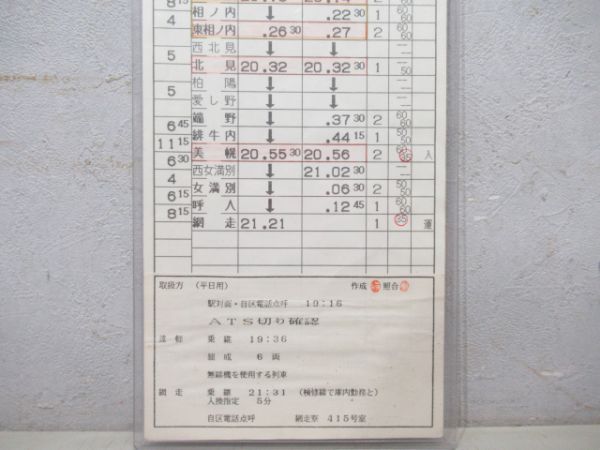 8 15
相ノ内 ↓ .22 30 1 60 60
4
東相ノ内 .26 30 .27 2 60 60
西北見 ↓ ↓ —
5
北見 20.32 20.32 30 1 — 50
柏陽 ↓ ↓ —
5
愛し野 ↓ ↓ —
端野 ↓ .37 30 2 60 60
6 45
緋牛内 ↓ .44 15 1 50 50
11 15
美幌 20.55 30 20.56 2 60 35 人
6 30
西女満別 ↓ 21.02 30 —
4
女満別 ↓ .06 30 2 50 50
6 15
呼人 ↓ .12 45 1 60 60
8 15
網走 21.21 1 35 運
取扱方 (平日用) 作成 照合
駅対面・自区電話点呼 19:16
ATS切り確認
遠軽 乗継 19:36
編成 6両
無線機を使用する列車
網走 乗継 21:31 (検修線で庫内勤務と)
入換指定 5分
自区電話点呼 網走寮 415号室